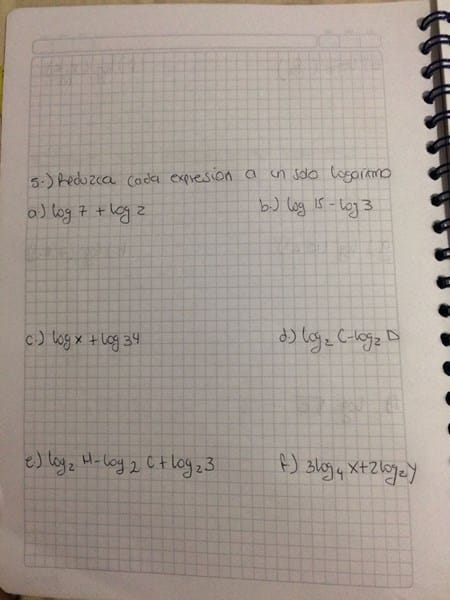 5.) Reduzca cada expresion a un solo logaritmo
a.) log 7 + log 2 b.) log 15 - log 3
c.) log x + log 34 d.) log₂ C - log₂ D
e.) log₂ H - log₂ C + log₂ 3 f.) 3log₄ X + 2log₂ y